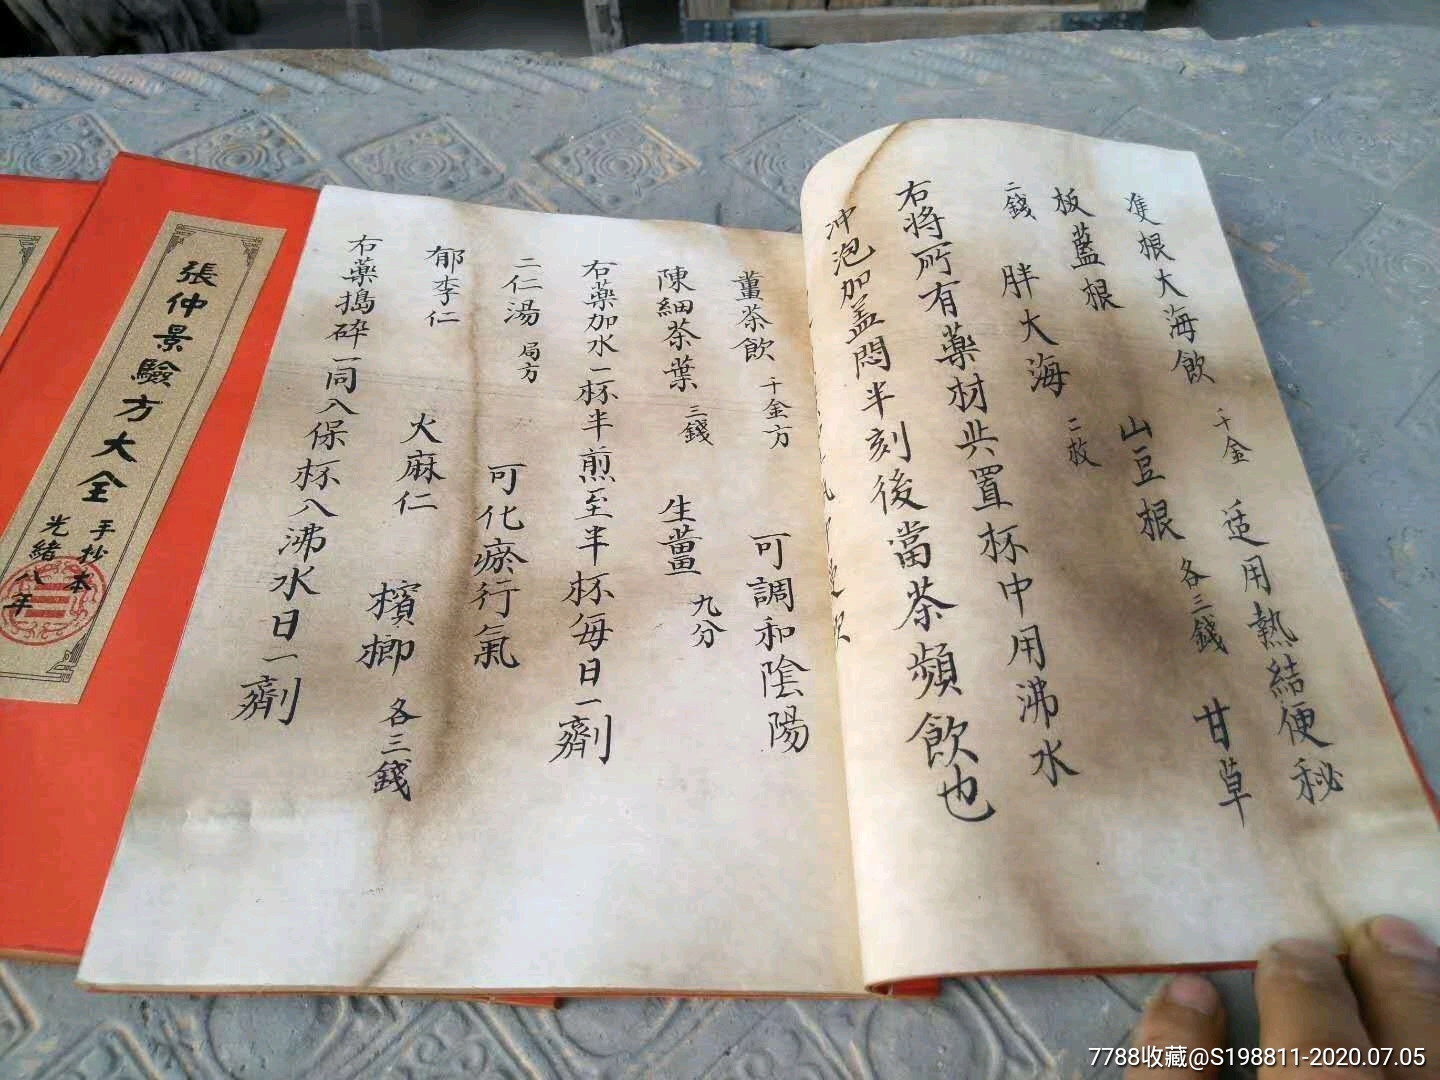 隻根大海飲 千金 适用熱結便秘
板藍根 山豆根 各三錢 甘草
二錢 胖大海 二枚
右將所有藥材共置杯中用沸水
沖泡加盖悶半刻後當茶頻飲也
薑茶飲 千金方 可調和陰陽
陳細茶葉 三錢 生薑 九分
右藥加水一杯半煎至半杯每日一劑
二仁湯 局方 可化瘀行氣
郁李仁 火麻仁 檳榔 各三錢
右藥搗碎一同入保杯入沸水日一劑
張仲景驗方大全
手抄本
光緒八年
7788收藏@S198811-2020.07.05